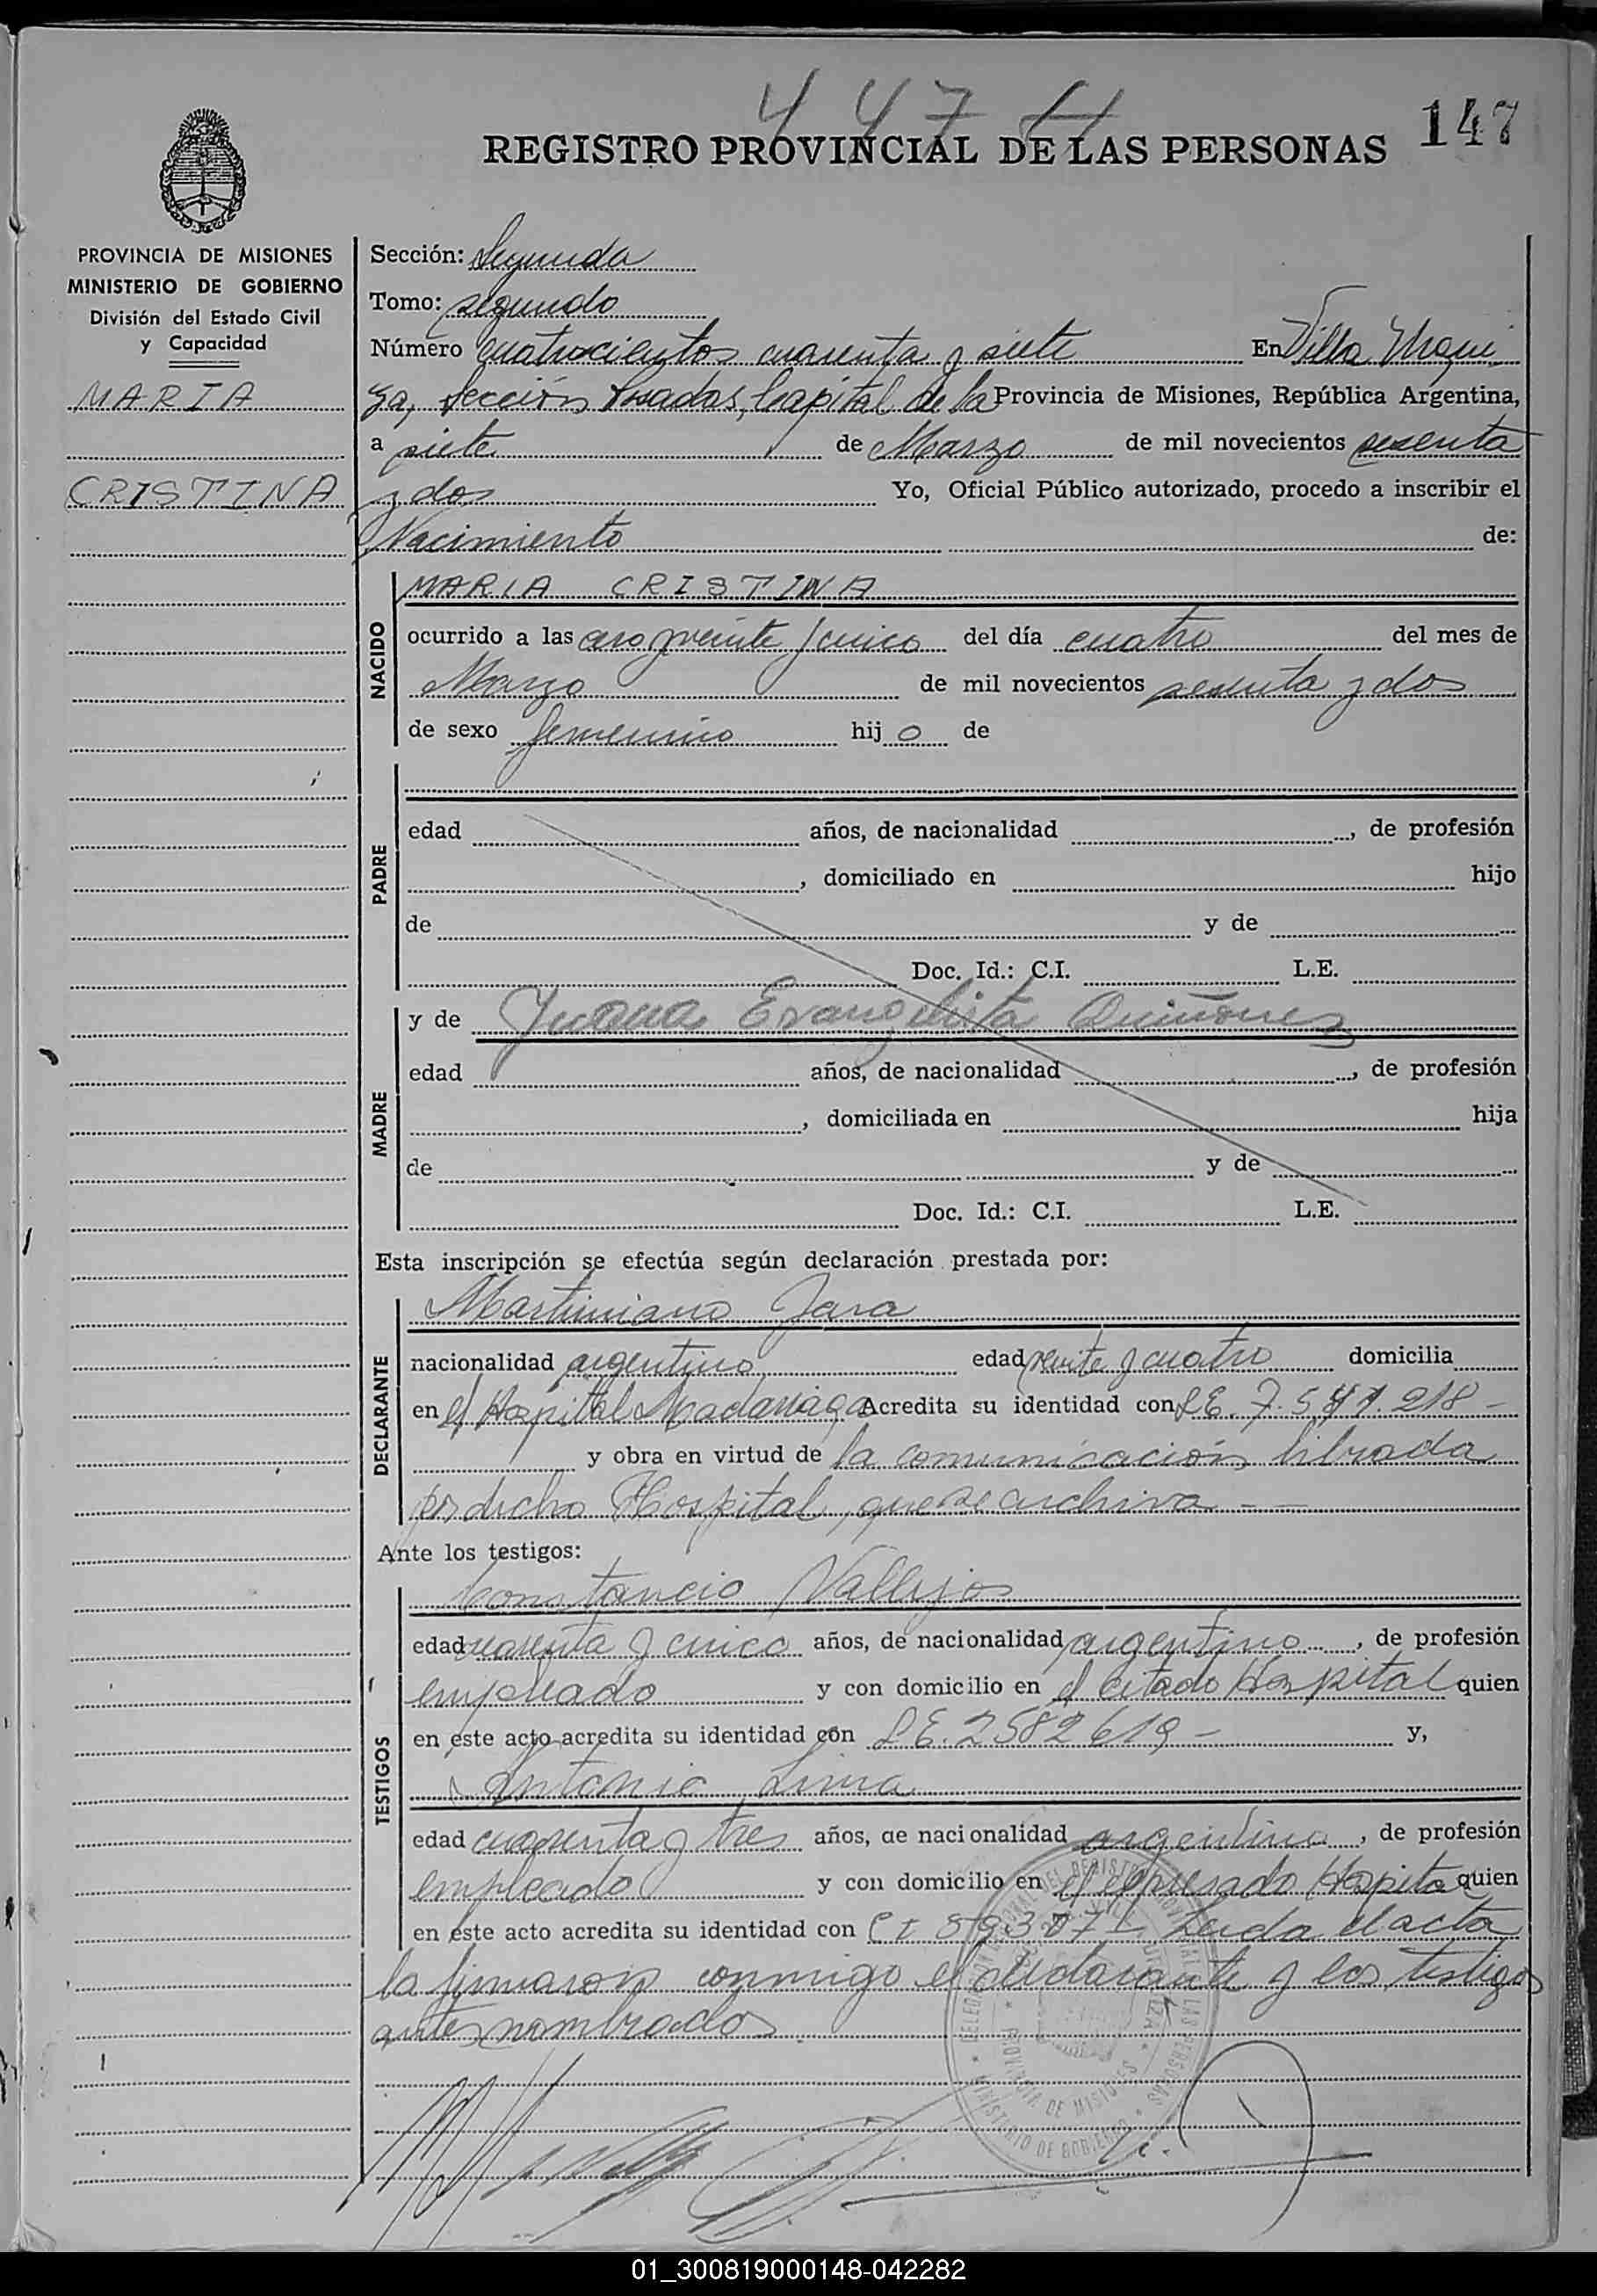 447
147
REGISTRO PROVINCIAL DE LAS PERSONAS
PROVINCIA DE MISIONES
MINISTERIO DE GOBIERNO
División del Estado Civil
y Capacidad
MARIA
CRISTINA
Sección: Segunda
Tomo: segundo
Número cuatrocientos cuarenta y siete En Villa Urqui
za, sección Posadas, Capital de la Provincia de Misiones, República Argentina,
a siete de Marzo de mil novecientos sesenta
y dos Yo, Oficial Público autorizado, procedo a inscribir el
Nacimiento de:
NACIDO
MARIA CRISTINA
ocurrido a las cero y veinte y cinco del día cuatro del mes de
Marzo de mil novecientos sesenta y dos
de sexo femenino hijo de
PADRE
edad años, de nacionalidad , de profesión
, domiciliado en hijo
de y de
Doc. Id.: C.I. L.E.
MADRE
y de Juana Evangelista Quiñones
edad años, de nacionalidad , de profesión
, domiciliada en hija
de y de
Doc. Id.: C.I. L.E.
Esta inscripción se efectúa según declaración prestada por:
DECLARANTE
Martiniano Jara
nacionalidad argentino edad veinte y cuatro domicilia
en el Hospital Madariaga Acredita su identidad con L E. 7.541.218 -
y obra en virtud de la comunicación librada
por dicho Hospital, que se archiva - -
Ante los testigos:
TESTIGOS
Constancio Vallejos
edad cuarenta y cinco años, de nacionalidad argentino , de profesión
empleado y con domicilio en el citado Hospital quien
en este acto acredita su identidad con L E. 2582619 - y,
Antonio Lima
edad cuarenta y tres años, de nacionalidad argentino , de profesión
empleado y con domicilio en el expresado Hospital quien
en este acto acredita su identidad con C I 59307 - Leida el acta
la firmaron conmigo el declarante y los testigos
antes nombrados
PROVINCIA DE MISIONES
MINISTERIO DE GOBIERNO
01_300819000148-042282